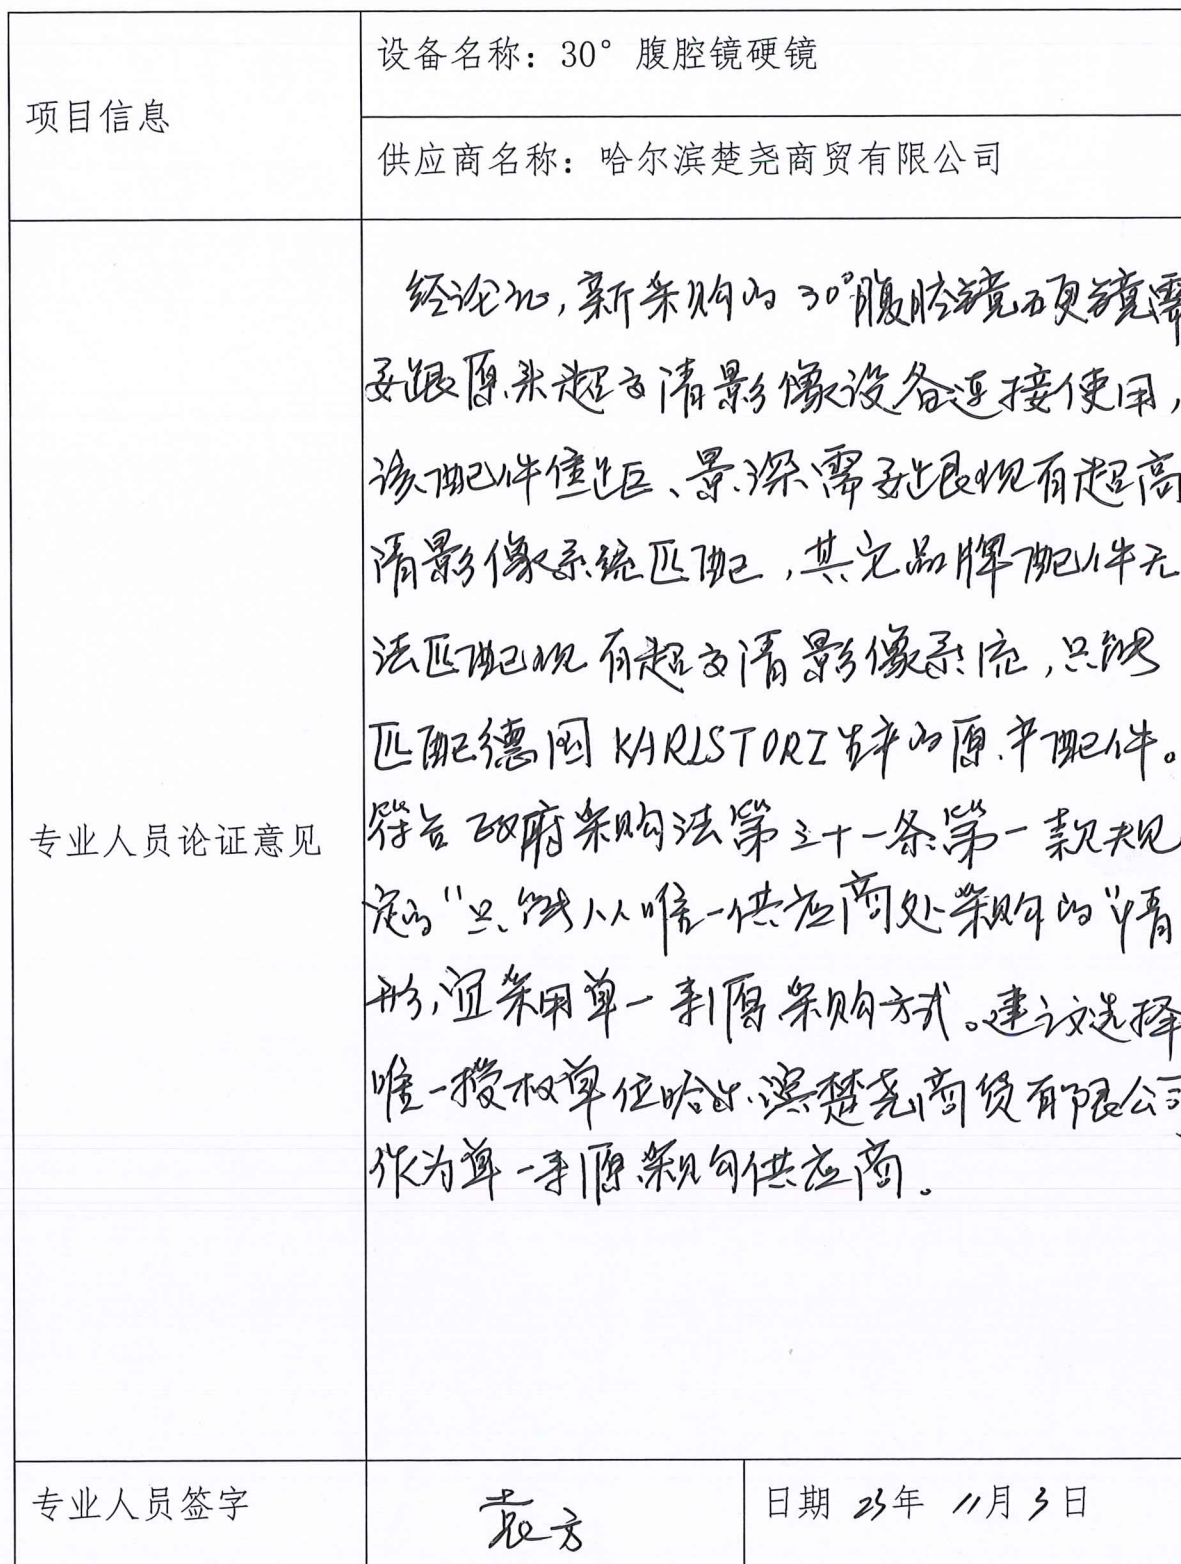 设备名称：30° 腹腔镜硬镜
项目信息
供应商名称：哈尔滨楚尧商贸有限公司
经论证,新采购的30°腹腔镜硬镜需
要跟原来超高清影像设备连接使用,
该配件焦距、景深需要跟现有超高
清影像系统匹配,其它品牌配件无
法匹配现有超高清影像系统,只能
匹配德国KARLSTORZ生产的原厂配件。
符合政府采购法第三十一条第一款规
定的“只能从唯一供应商处采购的”情
形,宜采用单一来源采购方式。建议选择
唯一授权单位哈尔滨楚尧商贸有限公司
作为单一来源采购供应商。
专业人员论证意见
专业人员签字 袁方 日期 23年 11月3日